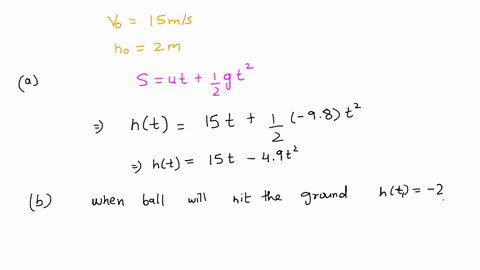 V₀ = 15 m/s
h₀ = 2 m
(a) S = ut + 1/2 gt²
⇒ h(t) = 15t + 1/2 (-9.8) t²
⇒ h(t) = 15t - 4.9t²
(b) when ball will hit the ground h(t₁) = -2